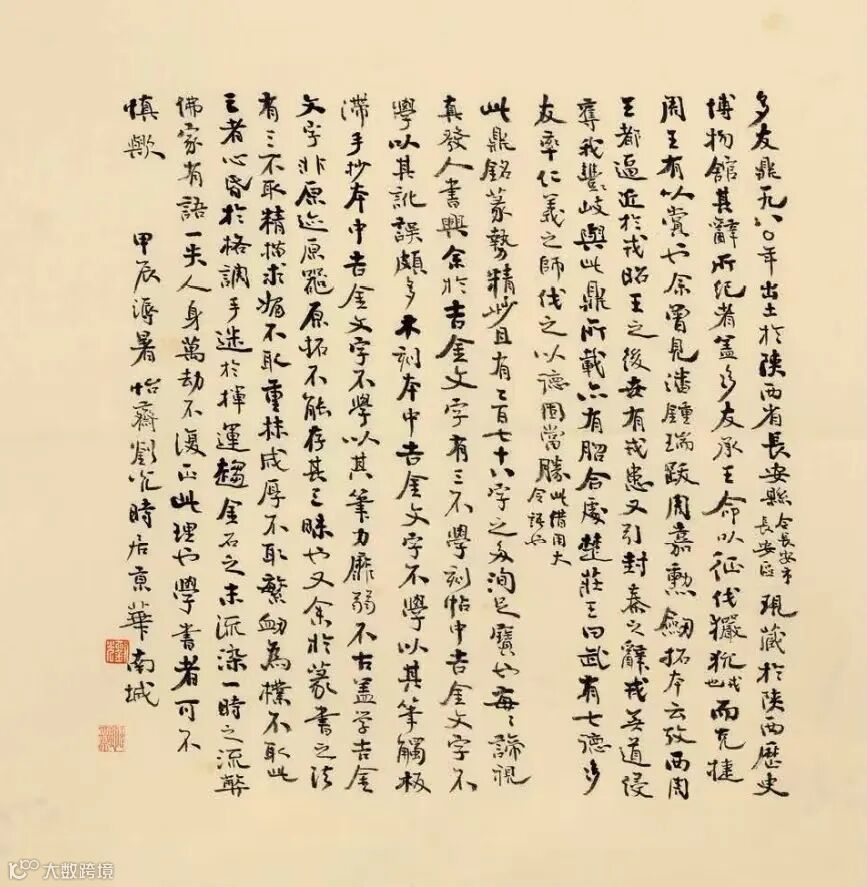 多友鼎一九八〇年出土於陝西省長安縣今長安市長安區現藏於陝西歷史
博物館其辭所紀者蓋多友承王命以征伐玁狁戎也而克捷
周王有以賞也余曾見潘鍾瑞跋周嘉勳劍拓本云攷西周
王都逼近於戎昭王之後每有戎患又引封秦之辭戎無道侵
奪我豐岐與此鼎所載亦有脗合處楚莊王曰武有七德多
友率仁義之師伐之以德固當勝此借用大令語也
此鼎銘篆勢精妙且有二百七十六字之多洵足寶也每々諦視
真發人書興余於吉金文字有三不學刻帖中吉金文字不
學以其訛誤頗多木刻本中吉金文字不學以其筆觸板
滯手抄本中吉金文字不學以其筆力靡弱不古蓋学吉金
文字非原迹原器原拓不能存其三昧也又余於篆書之法
有三不取精描求媚不取重抹成厚不取繁細為樸不取此
三者心昏於格調手迷於揮運趨金石之末流染一時之流弊
佛家有語一失人身萬劫不復正此理也學書者可不
慎歟 甲辰溽暑怡齋劉光時居京華南城
大数跨境